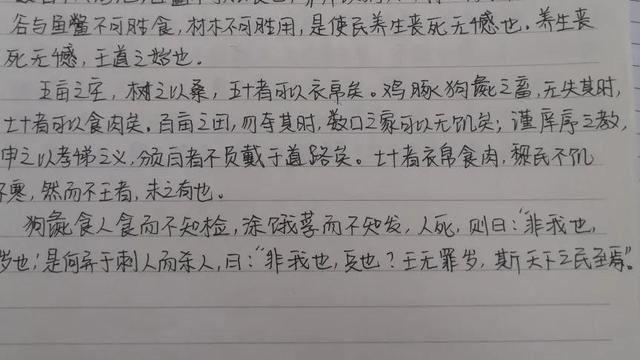 谷与鱼鳖不可胜食，材木不可胜用，是使民养生丧死无憾也。养生丧
死无憾，王道之始也。
五亩之宅，树之以桑，五十者可以衣帛矣。鸡豚狗彘之畜，无失其时，
七十者可以食肉矣。百亩之田，勿夺其时，数口之家可以无饥矣；谨庠序之教，
申之以孝悌之义，颁白者不负戴于道路矣。七十者衣帛食肉，黎民不饥
不寒，然而不王者，未之有也。
狗彘食人食而不知检，涂饿莩而不知发，人死，则曰：“非我也，
岁也；是何异于刺人而杀人，曰：“非我也，兵也？王无罪岁，斯天下之民至焉”。